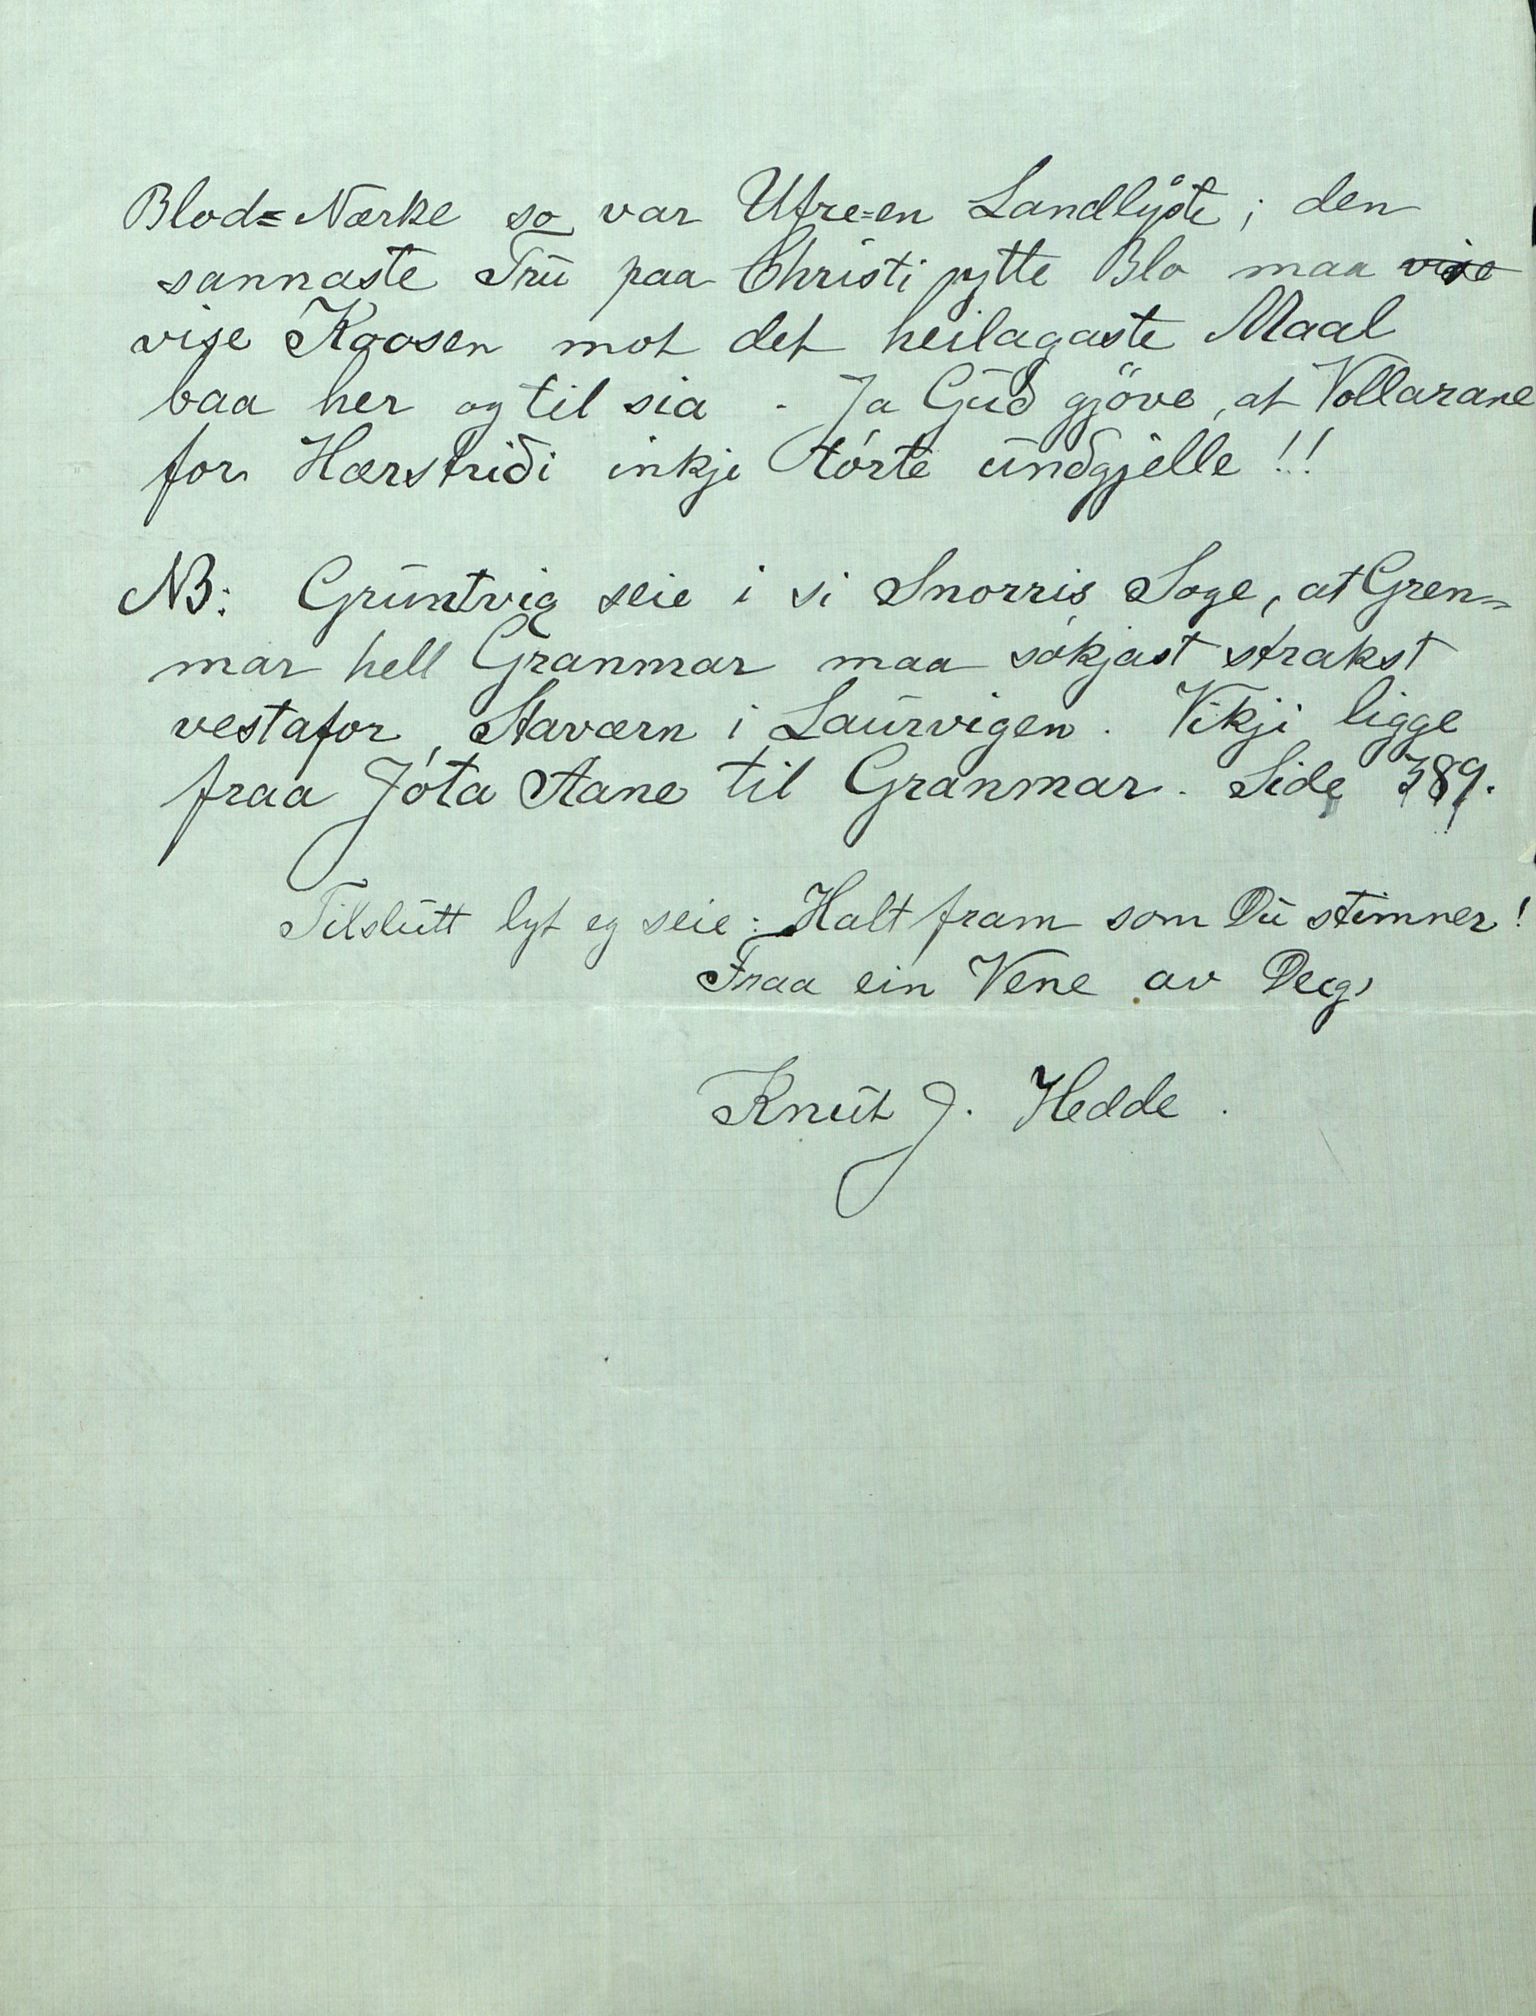 Blod= Nærke so var Ufre=en Landlyste; den
sannaste Trū paa Christi pytte Blo maa ~~vise~~
vise Koosen mot det heilagaste Maal
baa her og til sia - Ja Gūd gjöve, at Vollarane
for Hærstriði inkje tórte ūndgjelle!!
NB: Grūntvig seie i si Snorris Soge, at Gren=
mar hell Granmar maa sökjast strakst
vestafor, Staværn i Laūrvigen. Vikji ligge
fraa Jóta Aane til Granmar. Side 389.
Tilslūtt lyt eg seie: Halt fram som Dū stemner!
Fraa ein Vene av Deg,
Knūt J. Hedde.